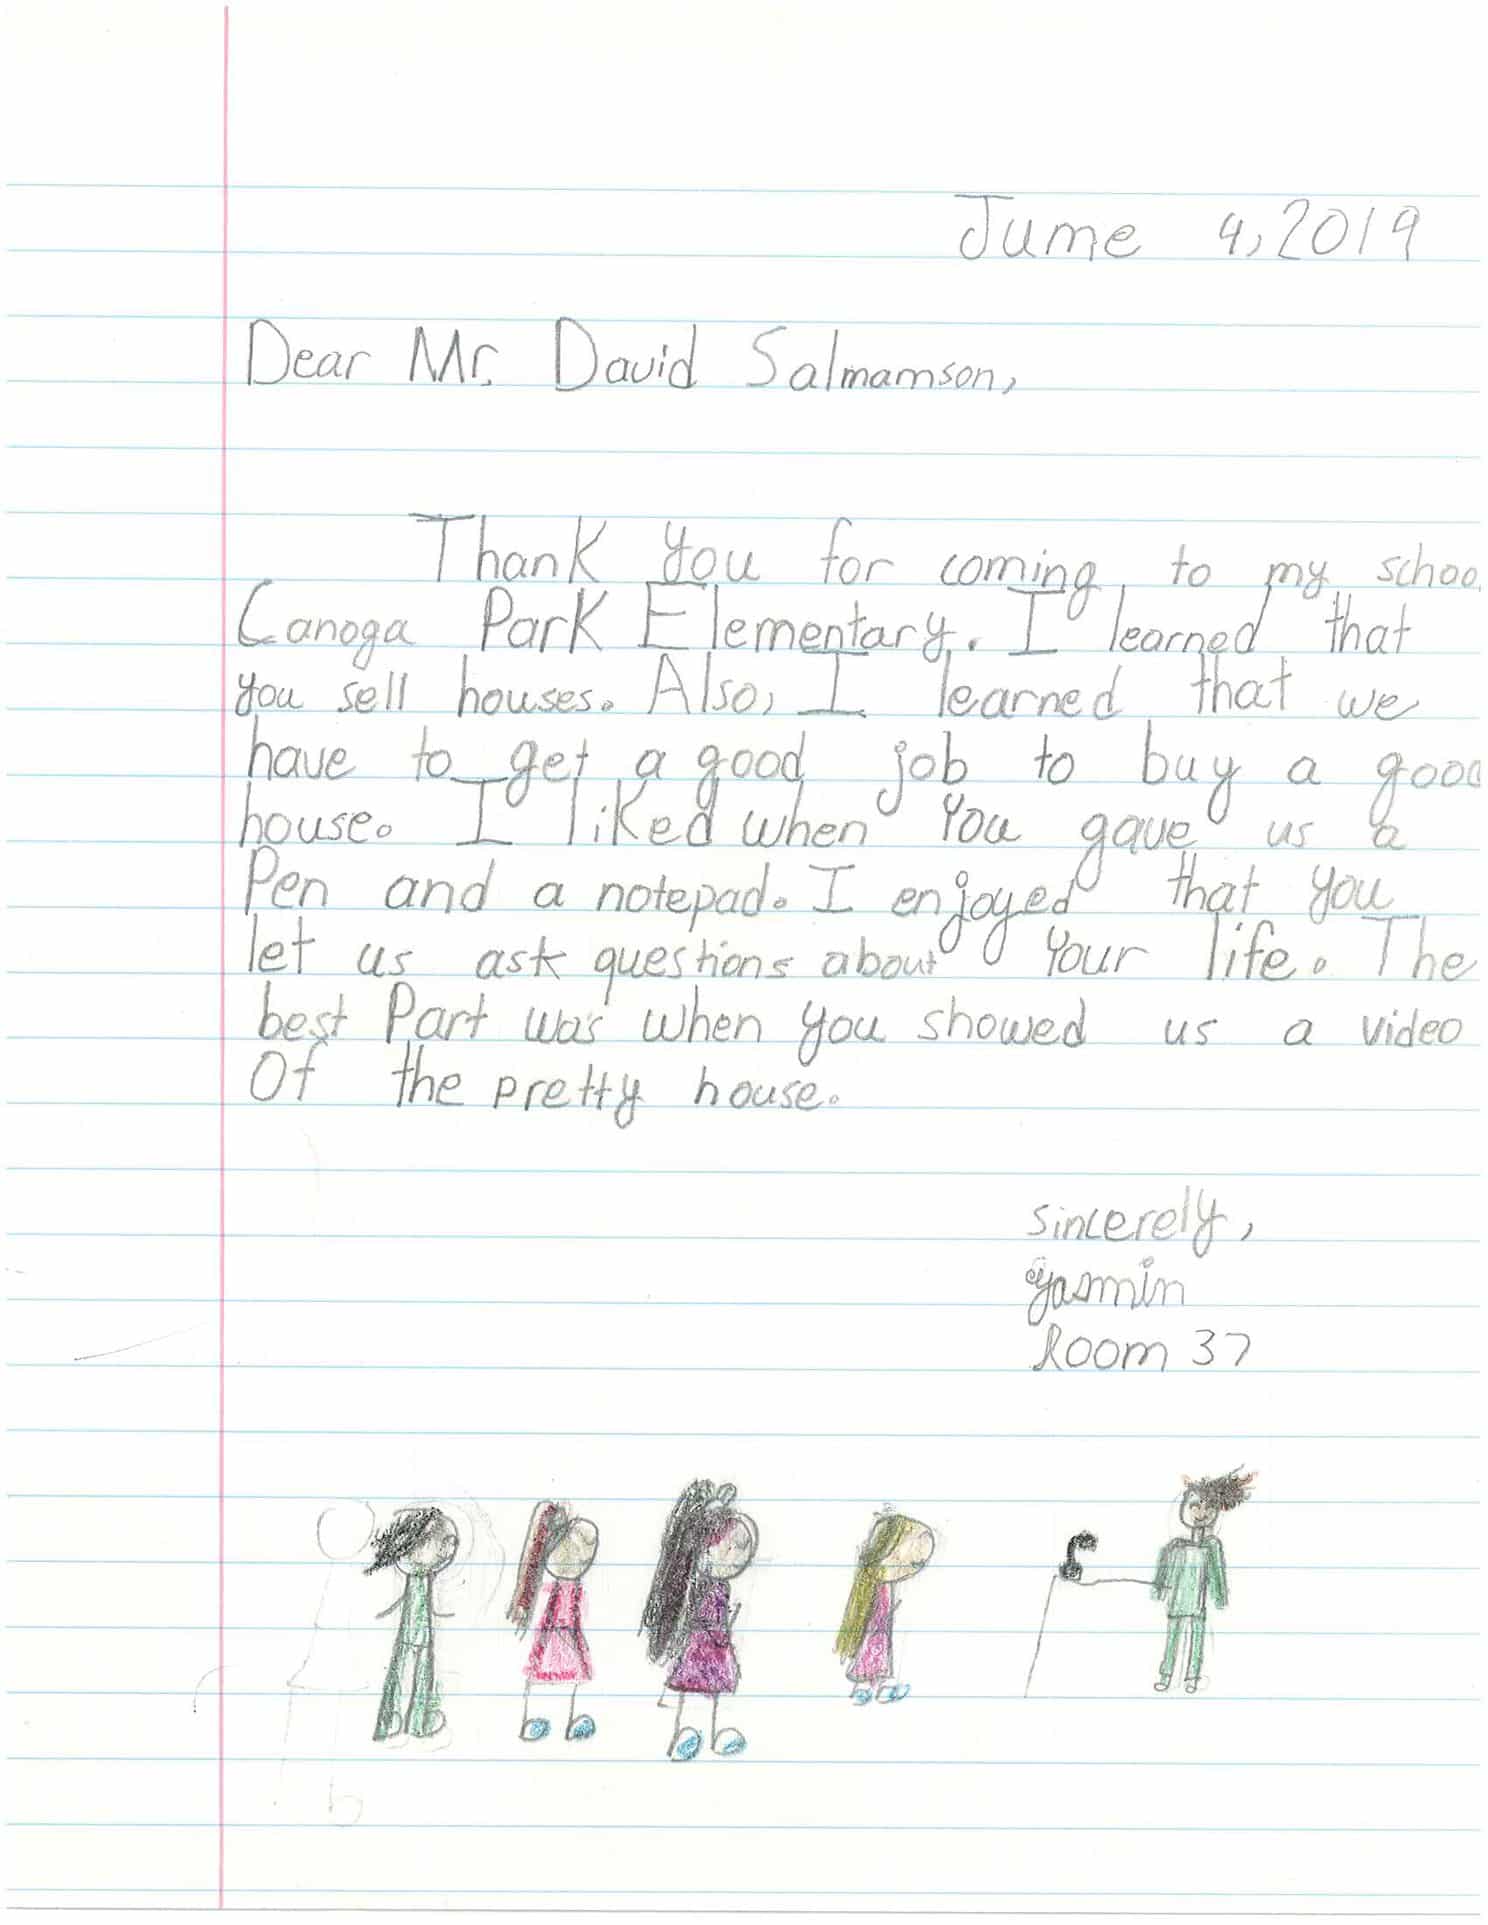 Jume 4, 2019
Dear Mr. David Salmamson,
Thank you for coming to my schoo
Canoga Park Elementary. I learned that
you sell houses. Also, I learned that we
have to get a good job to buy a good
house. I liked when you gave us a
Pen and a notepad. I enjoyed that you
let us ask questions about your life. The
best Part was when you showed us a video
Of the pretty house.
sincerely,
yasmin
Room 37